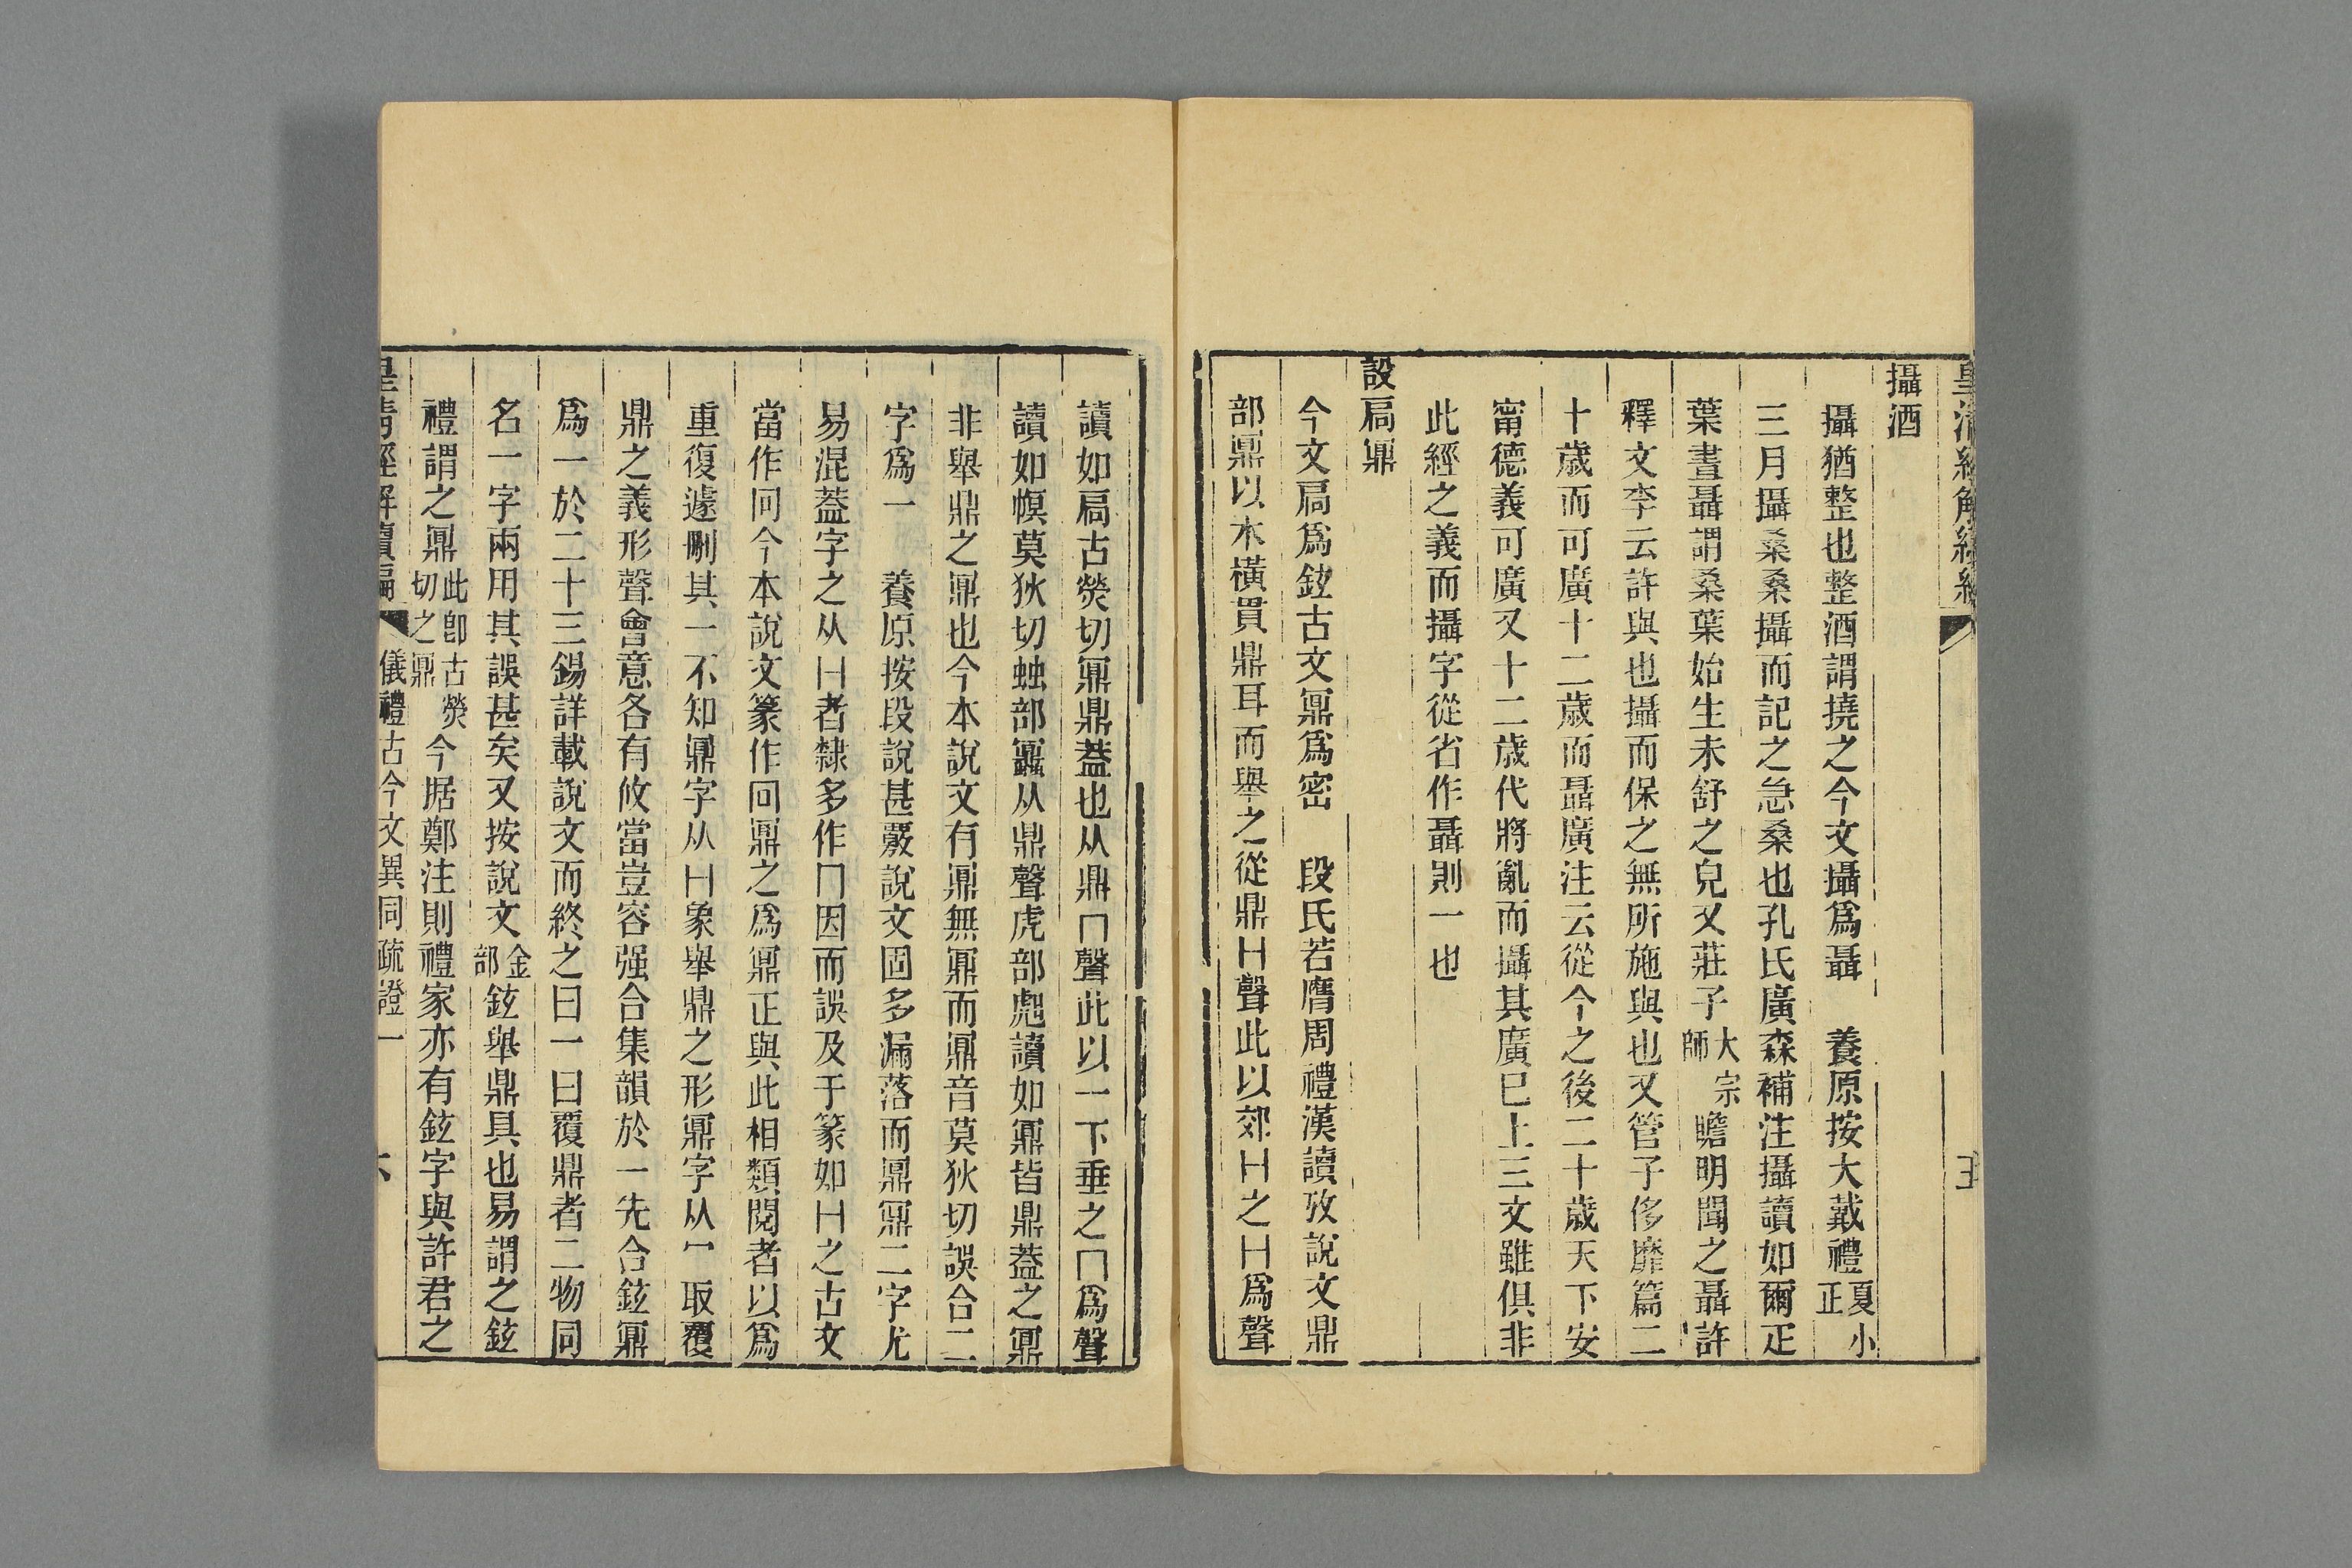 皇清經解續編
五
攝酒
攝猶整也整酒謂撓之今文攝爲聶　養原按大戴禮夏小正
三月攝桑桑攝而記之急桑也孔氏廣森補注攝讀如爾疋
葉晝聶謂桑葉始生未舒之皃又莊子大宗師瞻明聞之聶許
釋文李云許與也攝而保之無所施與也又管子侈靡篇二
十歲而可廣十二歲而聶廣注云從今之後二十歲天下安
甯德義可廣又十二歲代將亂而攝其廣已上三文雖俱非
此經之義而攝字從省作聶則一也
設扃鼎
今文扃爲鉉古文鼏爲密　段氏若膺周禮漢讀攷說文鼎
部鼏以木橫貫鼎耳而舉之從鼎H聲此以郊H之H爲聲
讀如扃古熒切鼏鼎蓋也从鼎冂聲此以一下垂之冂爲聲
讀如幎莫狄切䖵部䘇从鼎聲虎部䖑讀如鼏皆鼎蓋之鼏
非舉鼎之鼏也今本說文有鼏無鼏而鼏音莫狄切誤合二
字爲一　養原按段說甚覈說文固多漏落而鼏鼏二字尤
易混蓋字之从H者隸多作冂因而誤及于篆如H之古文
當作冋今本說文篆作回鼏之爲鼏正與此相類閱者以爲
重復遽刪其一不知鼏字从H象舉鼎之形鼏字从冖取覆
鼎之義形聲會意各有攸當豈容强合集韻於一先合鉉鼏
爲一於二十三錫詳載說文而終之曰一曰覆鼎者二物同
名一字兩用其誤甚矣又按說文金部鉉舉鼎具也易謂之鉉
禮謂之鼏此卽古熒切之鼏今据鄭注則禮家亦有鉉字與許君之
皇清經解續編　儀禮古今文異同疏證一　六